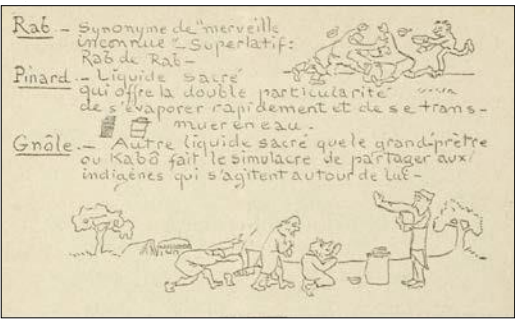 Rab. - Synonyme de "merveille
inconnue" - Superlatif:
Rab de Rab -
Pinard. - Liquide sacré
qui offre la double particularité
de s'évaporer rapidement et de se trans-
muer en eau.
Gnôle. - Autre liquide sacré que le grand-prêtre
ou Kabô fait le simulacre de partager aux
indigènes qui s'agitent autour de lui -